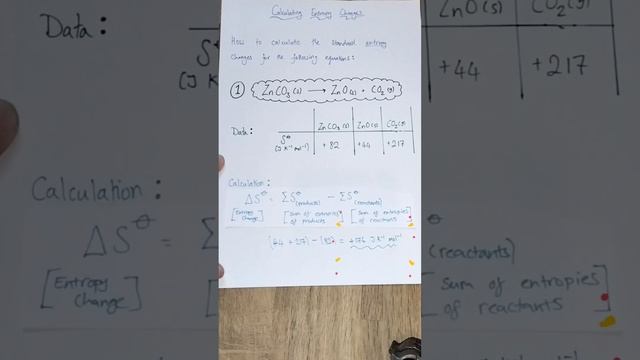 Calculating Entropy Changes
How to calculate the standard entropy
changes for the following equations:
① ZnCO₃(s) → ZnO(s) + CO₂(g)
Data:
ZnCO₃(s) ZnO(s) CO₂(g)
S⊖ (J K⁻¹ mol⁻¹) +82 +44 +217
Calculation:
ΔS⊖ = ΣS⊖(products) − ΣS⊖(reactants)
[Entropy change] [sum of entropies of products] [sum of entropies of reactants]
(44 + 217) − (82) = +179 J K⁻¹ mol⁻¹
Data:
ZnO(s) CO₂(g)
S⊖ (J K⁻¹
+44 +217
Calculation:
ΔS⊖ =
(reactants)
[Entropy change]
sum of entropies
of reactants]